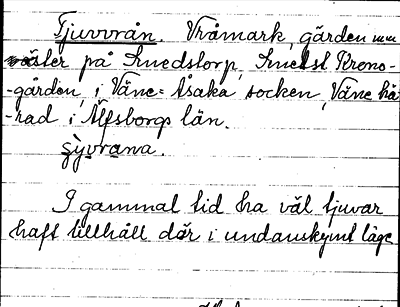 Tjuvvrån. Vråmark, gården
väster på Smedstorp, Smedst Krono-
-gården, i Väne-Åsaka socken, Väne hä
-rad i Älfsborgs län.
I gammal tid ha väl tjuvar
haft tillhåll där i undanskymt läge